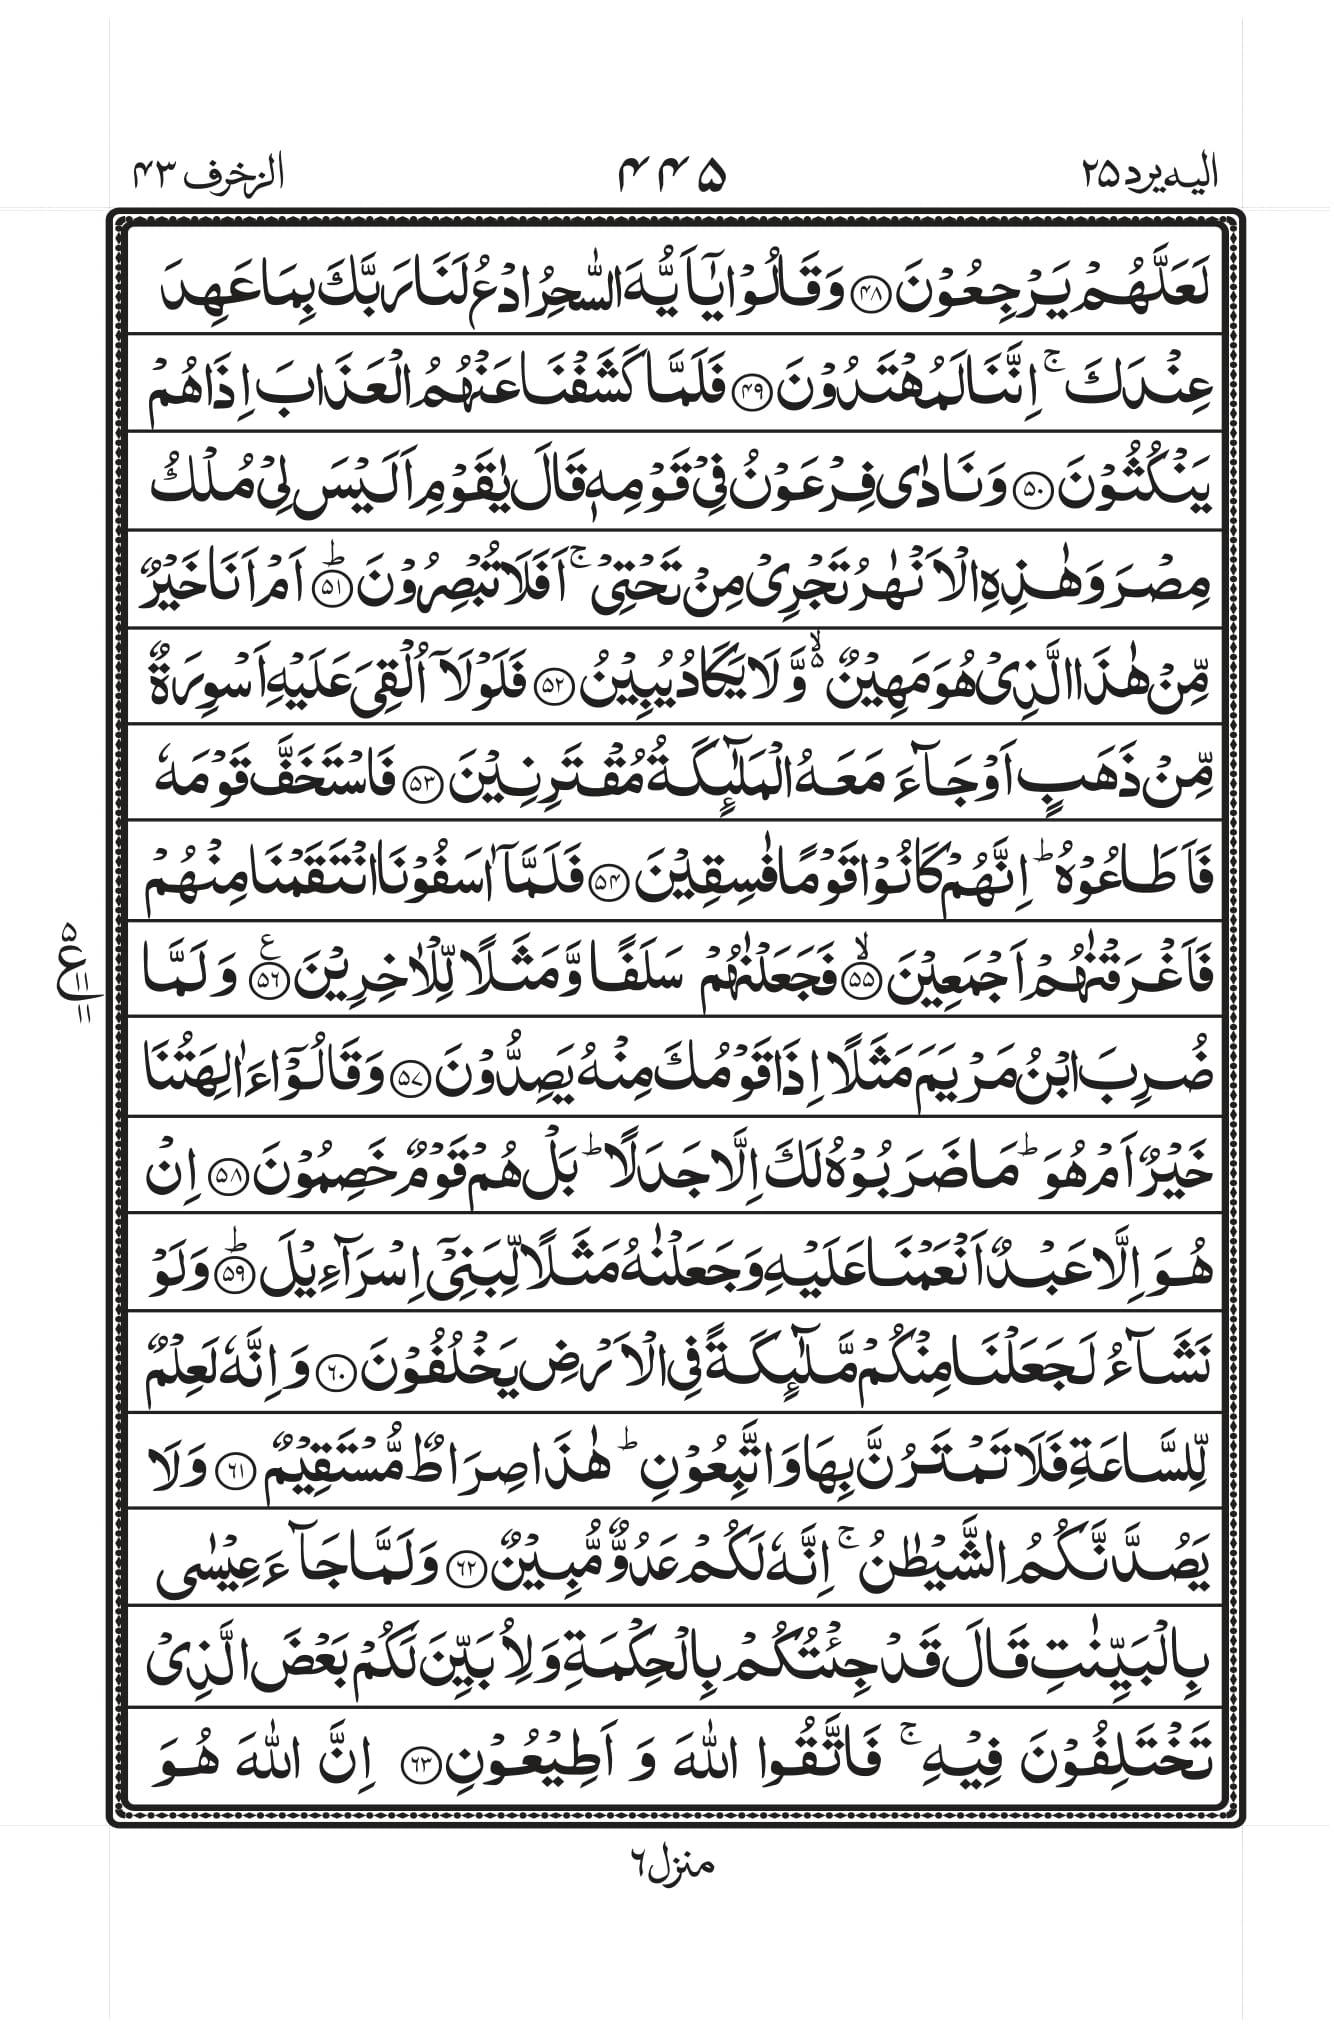 الیه یرد ۲۵
۴۴۵
الزخرف ۴۳
لَعَلَّهُمۡ یَرۡجِعُوۡنَ ﴿۴۸﴾ وَقَالُوۡا یٰۤاَیُّهَ السّٰحِرُ ادۡعُ لَنَا رَبَّكَ بِمَا عَهِدَ
عِنۡدَكَ ۚ اِنَّنَا لَمُهۡتَدُوۡنَ ﴿۴۹﴾ فَلَمَّا كَشَفۡنَا عَنۡهُمُ الۡعَذَابَ اِذَا هُمۡ
یَنۡكُثُوۡنَ ﴿۵۰﴾ وَنَادٰی فِرۡعَوۡنُ فِیۡ قَوۡمِهٖ قَالَ یٰقَوۡمِ اَلَیۡسَ لِیۡ مُلۡكُ
مِصۡرَ وَهٰذِهِ الۡاَنۡهٰرُ تَجۡرِیۡ مِنۡ تَحۡتِیۡ ۚ اَفَلَا تُبۡصِرُوۡنَ ﴿۵۱﴾ؕ اَمۡ اَنَا خَیۡرٌ
مِّنۡ هٰذَا الَّذِیۡ هُوَ مَهِیۡنٌ ۬ۙ وَّلَا یَكَادُ یُبِیۡنُ ﴿۵۲﴾ فَلَوۡلَاۤ اُلۡقِیَ عَلَیۡهِ اَسۡوِرَةٌ
مِّنۡ ذَهَبٍ اَوۡ جَآءَ مَعَهُ الۡمَلٰٓئِكَةُ مُقۡتَرِنِیۡنَ ﴿۵۳﴾ فَاسۡتَخَفَّ قَوۡمَهٗ
فَاَطَاعُوۡهُ ؕ اِنَّهُمۡ كَانُوۡا قَوۡمًا فٰسِقِیۡنَ ﴿۵۴﴾ فَلَمَّاۤ اٰسَفُوۡنَا انۡتَقَمۡنَا مِنۡهُمۡ
فَاَغۡرَقۡنٰهُمۡ اَجۡمَعِیۡنَ ﴿۵۵﴾ۙ فَجَعَلۡنٰهُمۡ سَلَفًا وَّمَثَلًا لِّلۡاٰخِرِیۡنَ ﴿۵۶﴾ع وَلَمَّا
۵
ع ۱۱
۱۱
ضُرِبَ ابۡنُ مَرۡیَمَ مَثَلًا اِذَا قَوۡمُكَ مِنۡهُ یَصِدُّوۡنَ ﴿۵۷﴾ وَقَالُوۡۤا ءَاٰلِهَتُنَا
خَیۡرٌ اَمۡ هُوَ ؕ مَا ضَرَبُوۡهُ لَكَ اِلَّا جَدَلًا ؕ بَلۡ هُمۡ قَوۡمٌ خَصِمُوۡنَ ﴿۵۸﴾ اِنۡ
هُوَ اِلَّا عَبۡدٌ اَنۡعَمۡنَا عَلَیۡهِ وَجَعَلۡنٰهُ مَثَلًا لِّبَنِیۡۤ اِسۡرَآءِیۡلَ ﴿۵۹﴾ؕ وَلَوۡ
نَشَآءُ لَجَعَلۡنَا مِنۡكُمۡ مَّلٰٓئِكَةً فِی الۡاَرۡضِ یَخۡلُفُوۡنَ ﴿۶۰﴾ وَاِنَّهٗ لَعِلۡمٌ
لِّلسَّاعَةِ فَلَا تَمۡتَرُنَّ بِهَا وَاتَّبِعُوۡنِ ؕ هٰذَا صِرَاطٌ مُّسۡتَقِیۡمٌ ﴿۶۱﴾ وَلَا
یَصُدَّنَّكُمُ الشَّیۡطٰنُ ۚ اِنَّهٗ لَكُمۡ عَدُوٌّ مُّبِیۡنٌ ﴿۶۲﴾ وَلَمَّا جَآءَ عِیۡسٰی
بِالۡبَیِّنٰتِ قَالَ قَدۡ جِئۡتُكُمۡ بِالۡحِكۡمَةِ وَلِاُبَیِّنَ لَكُمۡ بَعۡضَ الَّذِیۡ
تَخۡتَلِفُوۡنَ فِیۡهِ ۚ فَاتَّقُوا اللّٰهَ وَ اَطِیۡعُوۡنِ ﴿۶۳﴾ اِنَّ اللّٰهَ هُوَ
منزل ۶